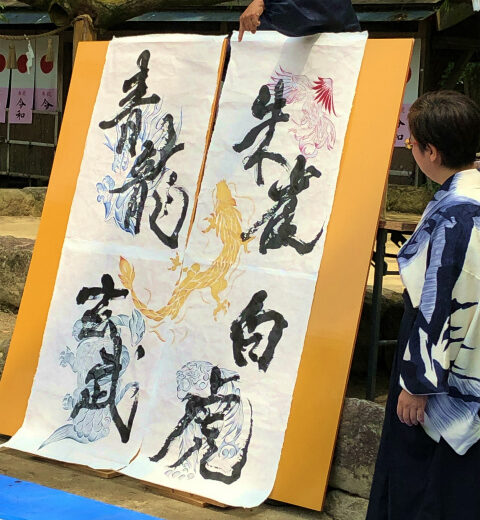 朱雀
白虎
青龍
玄武
令和
令和